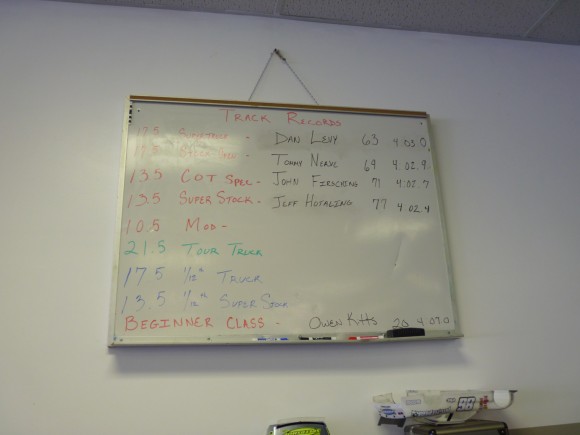 TRACK RECORDS
17.5 SUPERTRUCK - DAN LEVY 63 4.03.0
17.5 STOCK SPEC - TOMMY 69 4.02.9
13.5 COT SPEC - JOHN FIRSCHING 71 4.07.7
13.5 SUPER STOCK - JEFF HOTALING 77 4.02.4
10.5 MOD -
21.5 TOUR TRUCK
17.5 1/12th TRUCK
13.5 1/12th SUPER STOCK
BEGINNER CLASS - OWEN KITTS 20 4.07.0